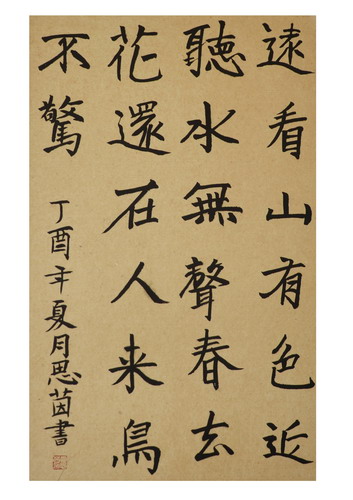 遠看山有色近
聽水無聲春去
花還在人来鳥
不驚
丁酉年夏月思茵書